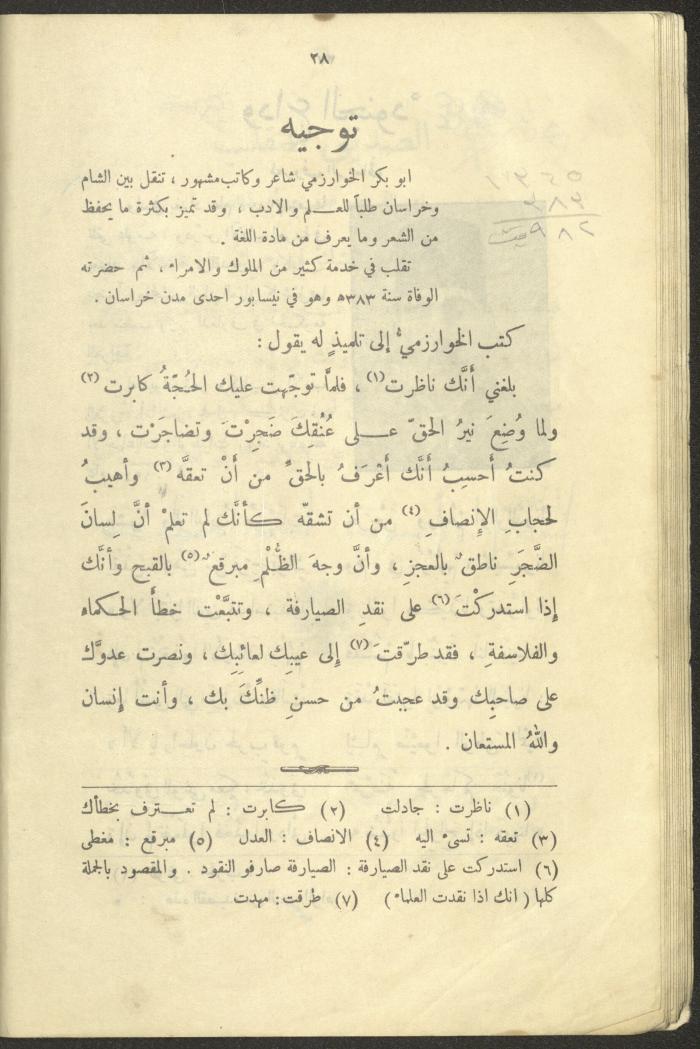 ٢٨
توجيه
ابو بكر الخوارزمي شاعر وكاتب مشهور ، تنقل بين الشام
وخراسان طلباً للعلم والادب ، وقد تميز بكثرة ما يحفظ
من الشعر وما يعرف من مادة اللغة .
تقلب في خدمة كثير من الملوك والامراء ، ثم حضرته
الوفاة سنة ٣٨٣ﻫ وهو في نيسابور احدى مدن خراسان .
كتب الخوارزميُّ إلى تلميذٍ له يقول :
بلغني أَنَّك ناظرت (١) ، فلمَّا توجّهت عليك الحُجّةُ كابرت (٢)
ولما وُضِعَ نيرُ الحقّ على عُنُقِكَ ضَجِرْتَ وتضاجَرْت ، وقد
كنتُ أَحسِبُ أَنَّك أَعْرَفُ بالحقِّ من أَنْ تعقَّه (٣) وأَهيبُ
لحجابِ الإِنصافِ (٤) من أن تشقّه كأنَّك لم تعلمْ أنَّ لِسانَ
الضَّجَرِ ناطقٌ بالعجزِ ، وأنَّ وجهَ الظُّلْمِ مبرقعٌ (٥) بالقبح وأنَّك
إِذا استدركْتَ (٦) على نقدِ الصيارفة ، وتتبَّعْت خطأَ الحكماءِ
والفلاسفةِ ، فقد طرّقتَ (٧) إِلى عيبِك لعائبِك ، ونصرت عدوَّك
على صاحبِك وقد عجبتُ من حسنِ ظنِّكَ بك ، وأنت إِنسان
واللهُ المستعان .
(١) ناظرت : جادلت (٢) كابرت : لم تعترف بخطأك
(٣) تعقه : تسيء اليه (٤) الانصاف : العدل (٥) مبرقع : مغطى
(٦) استدركت على نقد الصيارفة : الصيارفة صارفو النقود . والمقصود بالجملة
كلها ( انك اذا نقدت العلماء ) (٧) طرقت : مهدت